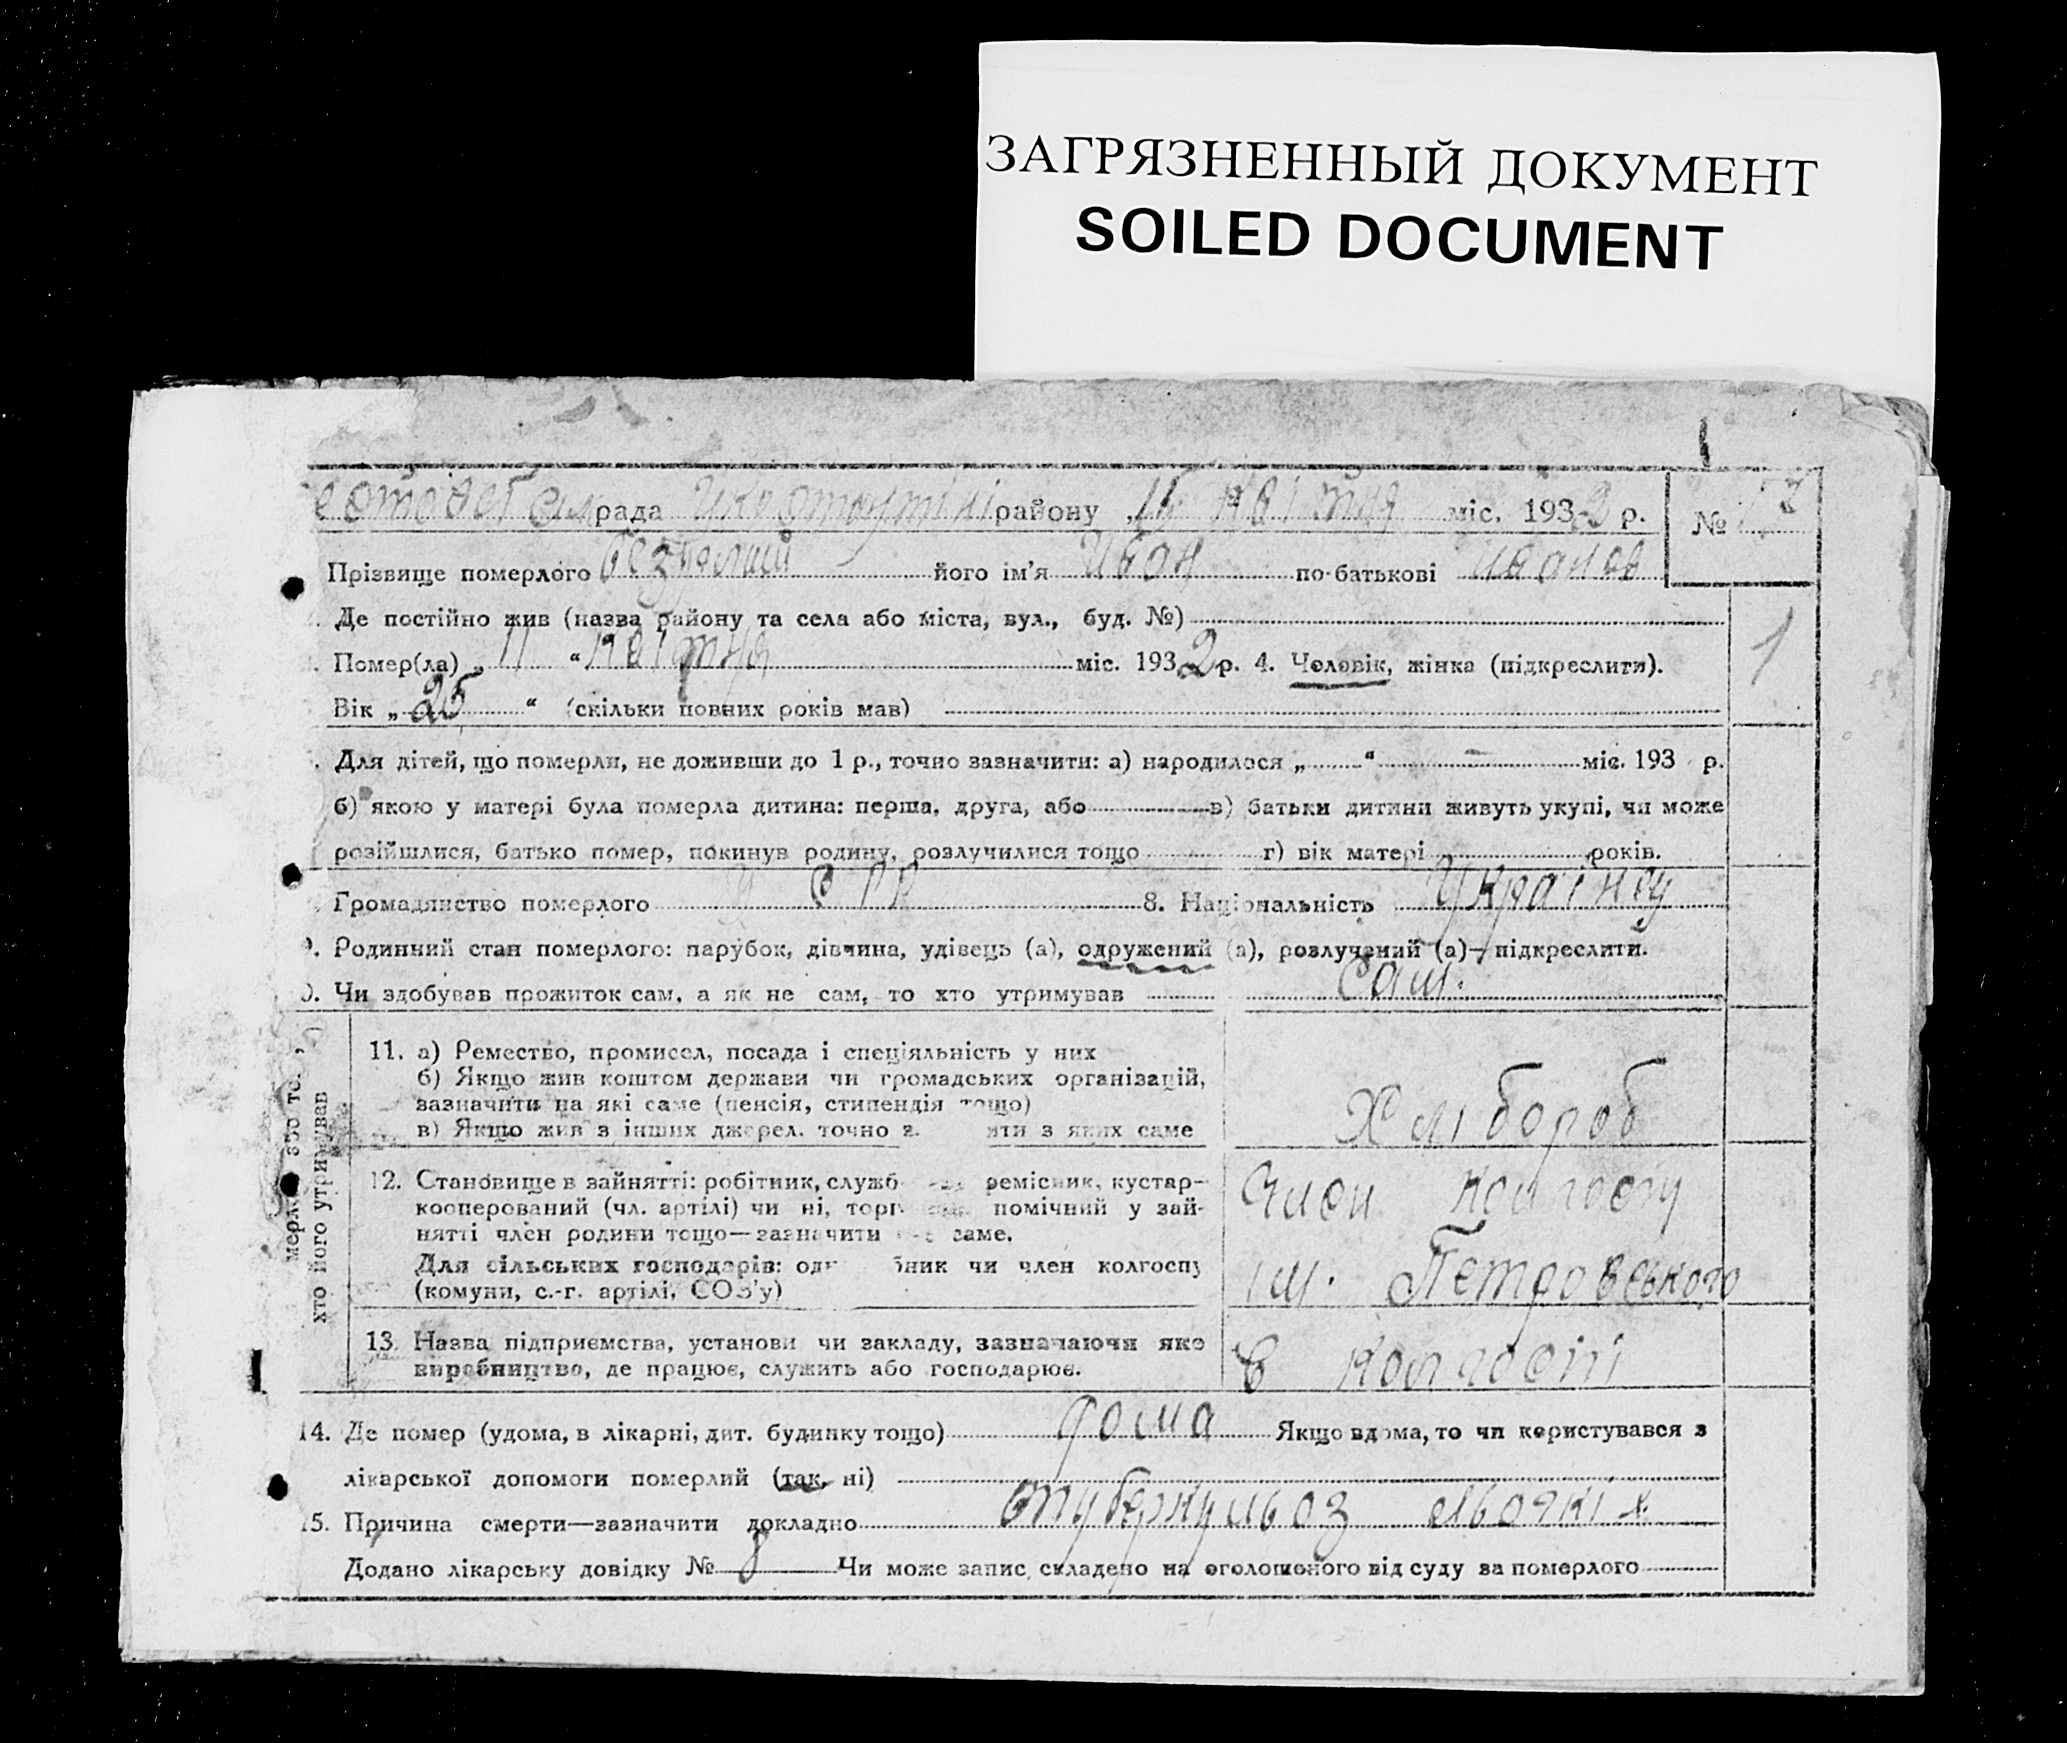 ЗАГРЯЗНЕННЫЙ ДОКУМЕНТ
SOILED DOCUMENT
рада району „11 квітня міс. 1932 р. № 7
Прізвище померлого його ім'я Иван по-батькові Иванов
Де постійно жив (назва району та села або міста, вул., буд. №)
1
Помер(ла) „11“ квітня міс. 1932 р. 4. Чоловік, жінка (підкреслити).
Вік „25“ (скільки повних років мав)
Для дітей, що померли, не доживши до 1 р., точно зазначити: а) народилося „ “ — міс. 193 р.
б) якою у матері була померла дитина: перша, друга, або в) батьки дитини живуть укупі, чи може
розійшлися, батько помер, покинув родину, розлучилися тощо г) вік матері років.
Громадянство померлого 8. Національність
9. Родинний стан померлого: парубок, дівчина, удівець (а), одружений (а), розлучений (а)—підкреслити.
Чи здобував прожиток сам, а як не сам, то хто утримував сам.
хто його утримував
11. а) Ремество, промисел, посада і спеціяльність у них
б) Якщо жив коштом держави чи громадських організацій,
зазначити на які саме (пенсія, стипендія тощо)
в) Якщо жив з інших джерел, точно з яких саме
Хлібороб
12. Становище в зайнятті: робітник, служб ремісник, кустар-
кооперований (чл. артілі) чи ні, торг помічний у зай-
нятті член родини тощо—зазначити саме.
Для сільських господарів: од чи член колгоспу
(комуни, с.-г. артілі, СОЗ'у)
Член колгоспу
ім. Петровського
13. Назва підприємства, установи чи закладу, зазначаючи яке
виробництво, де працює, служить або господарює.
в колгоспі
14. Де помер (удома, в лікарні, дит. будинку тощо) дома Якщо вдома, то чи користувався з
лікарської допомоги померлий (так, ні)
15. Причина смерти—зазначити докладно туберкульоз
Додано лікарську довідку № 8 Чи може запис складено на оголошеного від суду за померлого